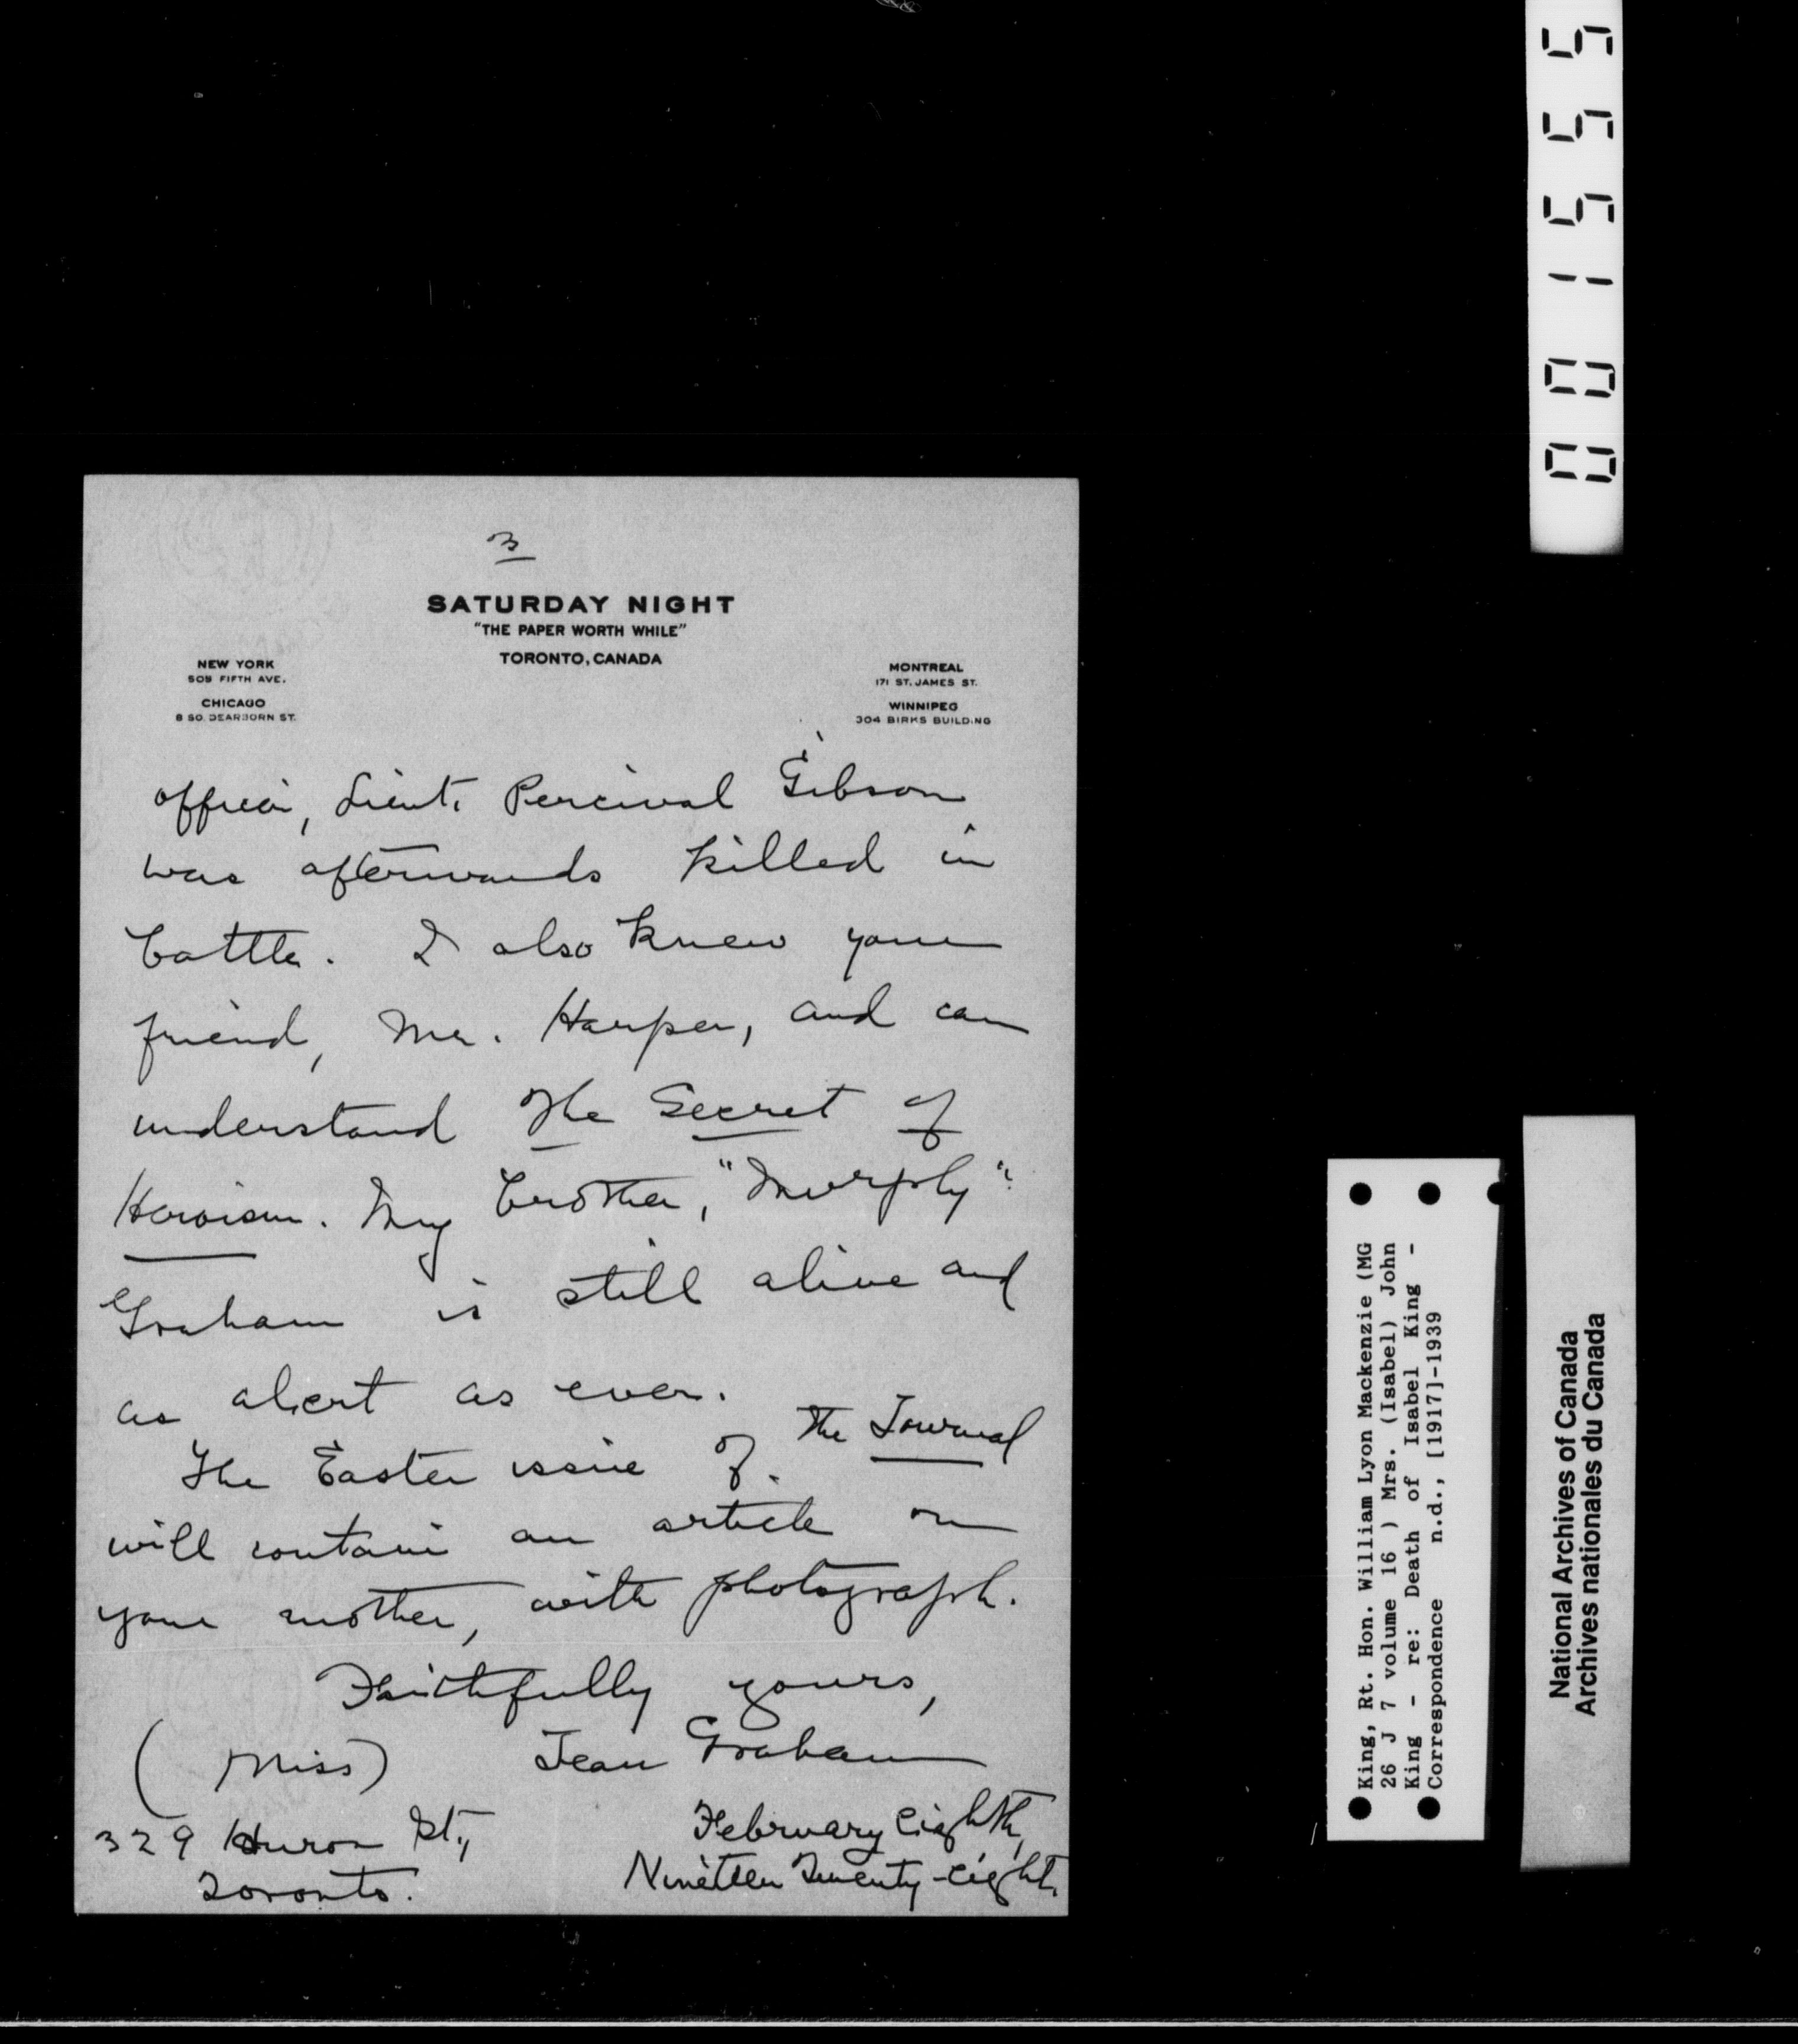 3
SATURDAY NIGHT
"THE PAPER WORTH WHILE"
TORONTO, CANADA
NEW YORK
505 FIFTH AVE.
CHICAGO
8 SO. DEARBORN ST.
MONTREAL
171 ST. JAMES ST.
WINNIPEG
304 BIRKS BUILDING
officer, Lieut. Percival Gibson
was afterwards killed in
battle. I also knew your
friend, Mr. Harper, and can
understand The Secret of
Heroism. My brother, "Murphy"
Graham is still alive and
as alert as ever.
The Easter issue of The Journal
will contain an article on
your mother, with photograph.
Faithfully yours,
(Miss) Jean Graham
329 Huron St.,
Toronto.
February Eighth,
Nineteen Twenty-eight.
001555
King, Rt. Hon. William Lyon Mackenzie (MG
26 J 7 volume 16 ) Mrs. (Isabel) John
King - re: Death of Isabel King -
Correspondence n.d., [1917]-1939
National Archives of Canada
Archives nationales du Canada